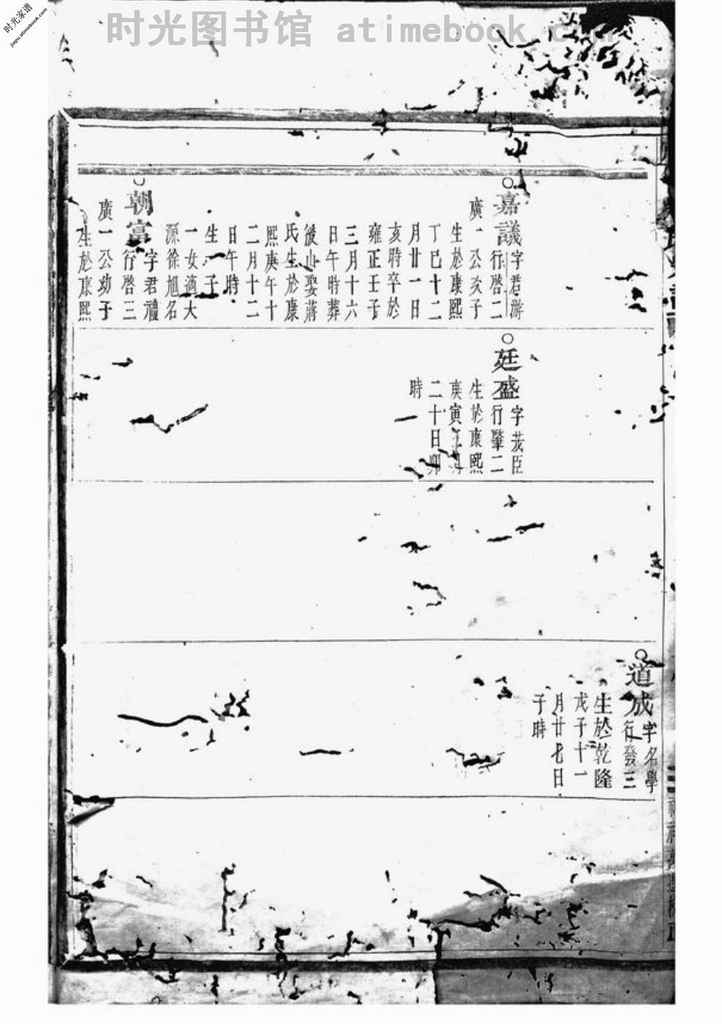 时光图书馆 atimebook.com
时光家谱
○嘉議
字君游
行啓二
廣一公次子
生於康熙
丁巳十二
月廿一日
亥時卒於
雍正壬子
三月十六
日午時葬
後山娶蔣
氏生於康
熙庚午十
二月十二
日午時
生一子
一女適大
源徐旭名
○朝富
字君禮
行啓三
廣一公幼子
生於康熙
○廷盛
字茂臣
行肇二
生於康熙
庚寅
二十日卯
時
○道成
字名學
行發三
生於乾隆
戊子十一
月廿七日
子時